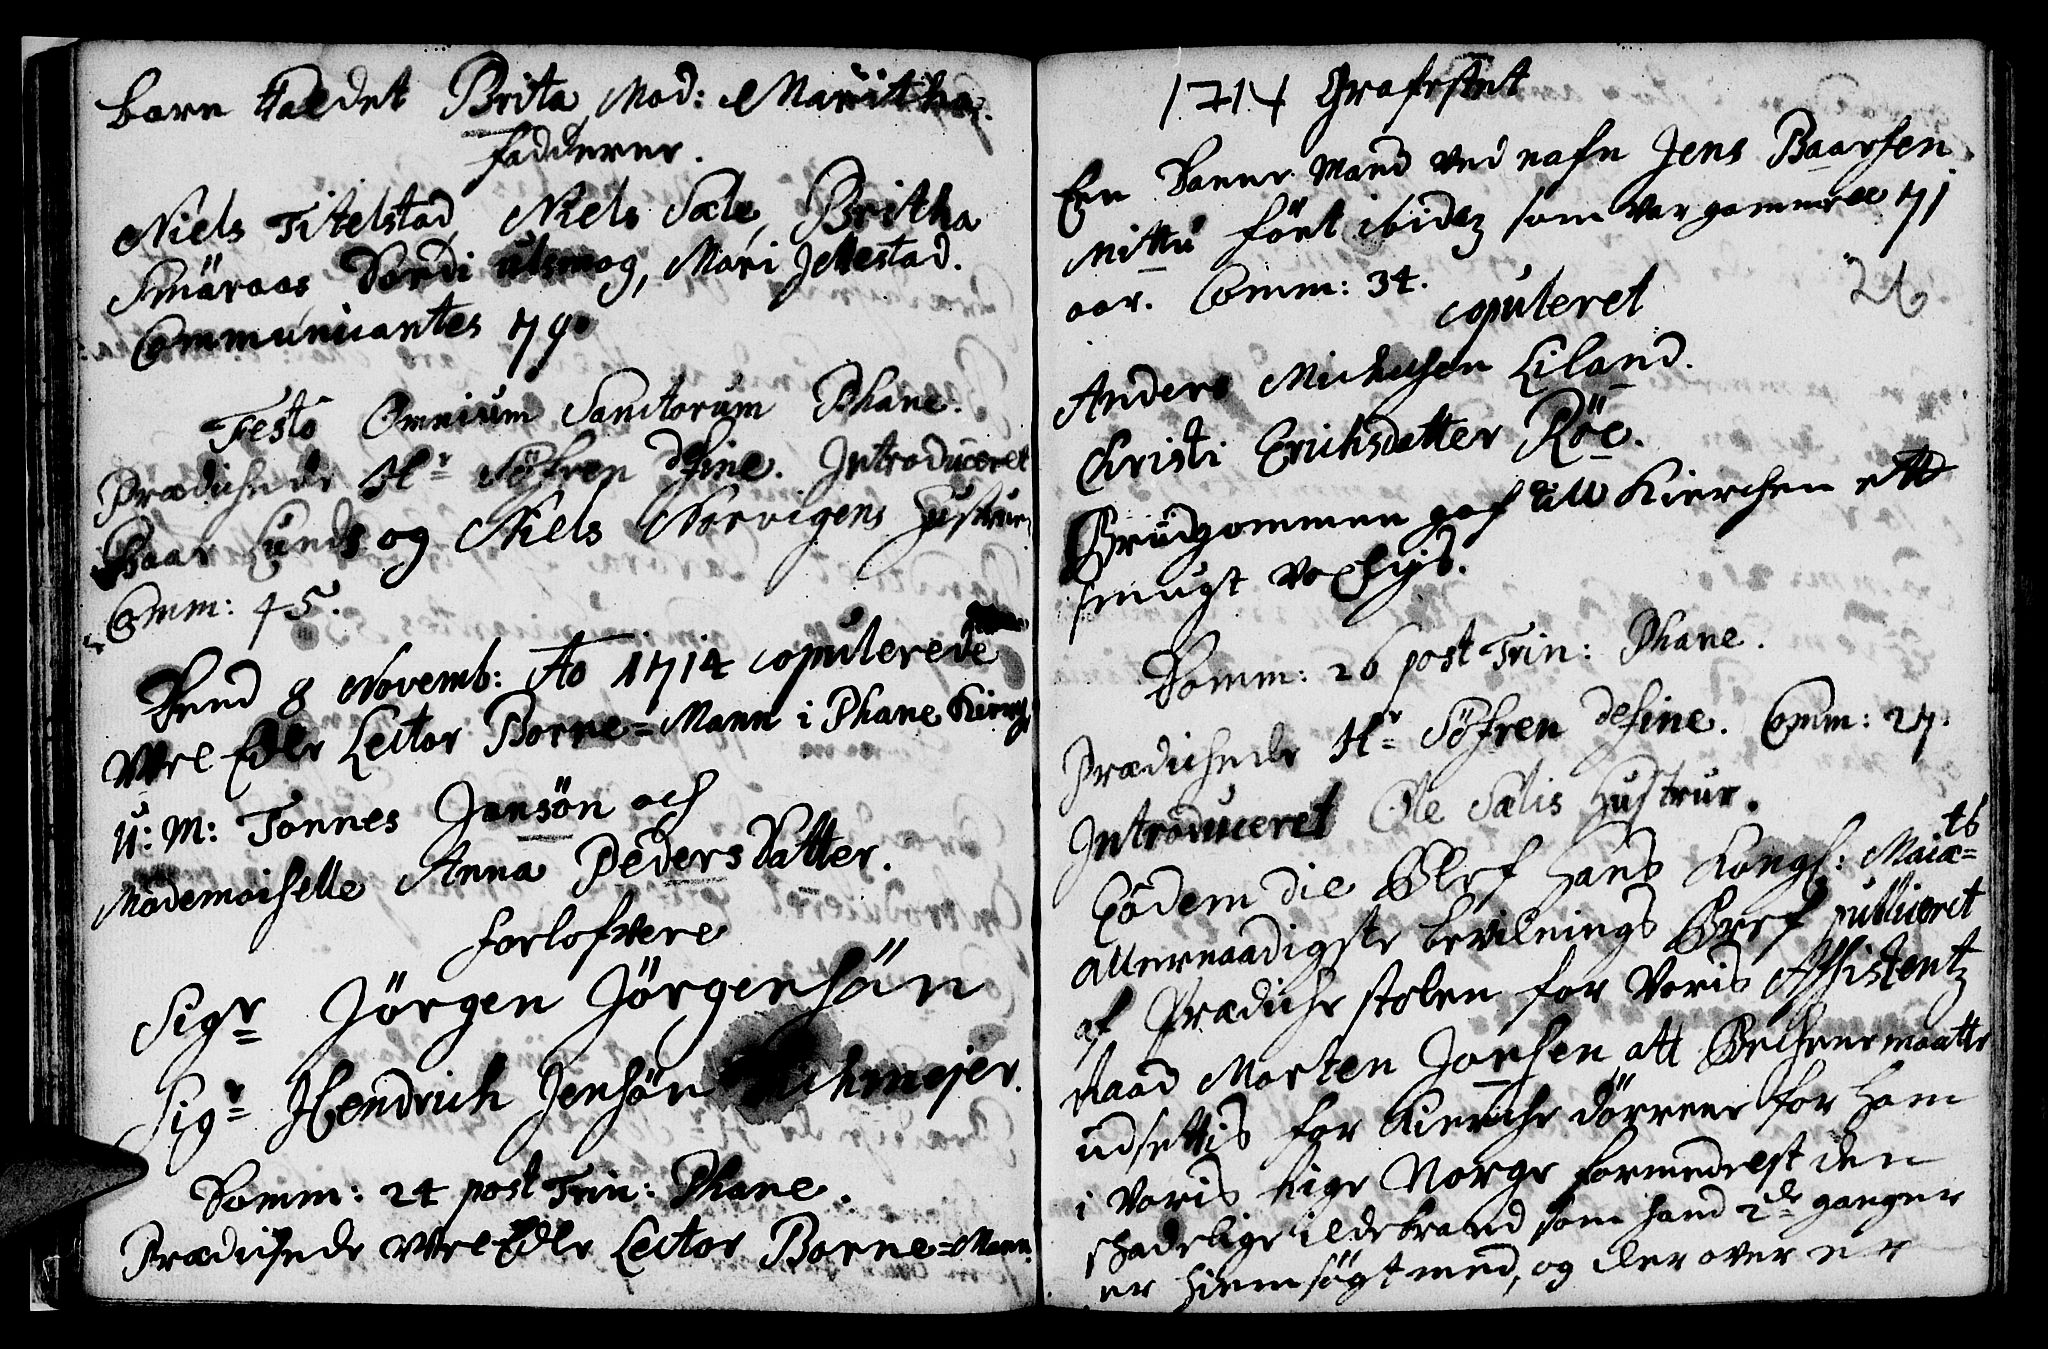 barn kaldet Brita, Mod: Maritha.
faddere.
Niels Titelstad, Niels Sæle, Britha
Smäraas Dordi utsmog, Mari Jellestad.
Communicantes 79
Festo Omnium Sanctorum Phane.
Prædichede Hr Söfren define. Introduceret
Baar Lunds og Niels Norvigens Hustruer
Comm: 45.
Dend 8 Novemb: Ao 1714 copulerede
WelEdle Lector Borne=Mann i Phane Kirche
U: M: Tonnes Jansön och
Mademoiselle Anna PedersDatter.
forlofvere
Sigr Jörgen Jörgensön
Sigr Hendrich Jensön
Domm: 24 post Trin: Phane.
Prædichede WelEdle Lector Borne=Mann.
1714 Grafestet
Een Danne Mand ved nafn Jens Baarsen
Mittu fört ibidem som var gammel 71
aar. Comm: 34.
26
copuleret
Anders Michelsen Liland.
Christi Erichsdatter Röe.
Brüdgommen gaf till Kierchen ett
smugt voxlys.
Domm: 26 post Trin: Phane.
Prædichede Hr Söfren define. Comm: 27.
Introduceret Ole Sælis Hustrur.
Eodem die blef Hans Kongl: Maiæ=
ts
allernaadigste bevilnings Bref publiceret
af Prædiche stolen for Voris Assistentz
Raad Morten Jonsen att Bechener maatte
udsettis for Kierche dörrene for ham
i Voris Rige Norge formedelst den
schadelige ildebrand som hand 2de ganger
er hiemsögt med, og der over er